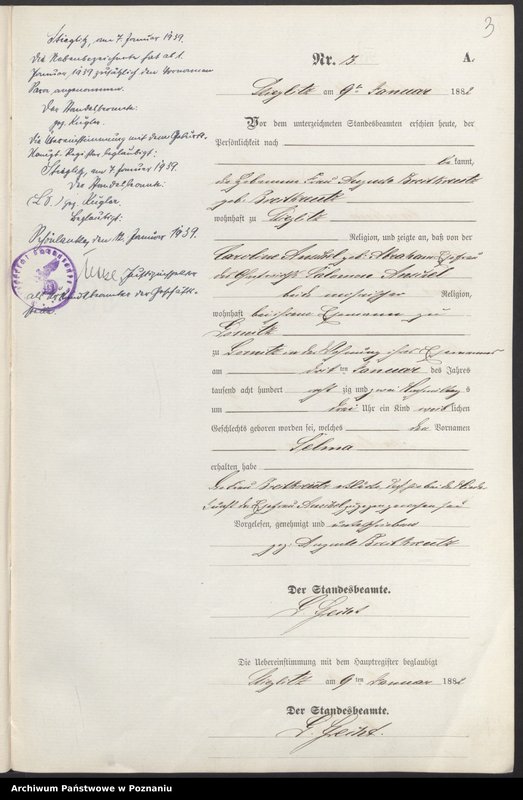 3
Stieglitz, am 7. Januar 1939.
Die Nebenbezeichnete hat ab 1.
Januar 1939 zusätzlich den Vornamen
Sara angenommen.
Der Standesbeamte:
gez. Kugler.
Die Übereinstimmung mit dem Geburts-
Register beglaubigt:
Stieglitz, am 7. Januar 1939.
Der Standesbeamte:
(L.S.) gez. Kugler.
Beglaubigt:
Schönlanke, den 12. Januar 1939.
Justizinspektor
als Urkundsbeamter der Geschäfts-
stelle.
Nr. 3. A.
am 9ten Januar 1882
Vor dem unterzeichneten Standesbeamten erschien heute, der
Persönlichkeit nach
bekannt,
die Hebamme Frau Auguste Breitkreutz
geb. Breitkreutz
wohnhaft zu
Religion, und zeigte an, daß von der
Caroline geb. Abraham Ehefrau
des Salomon
beide mosaischer Religion,
wohnhaft bei ihrem Ehemanne zu
zu in der Wohnung ihres Ehemannes
am ten Januar des Jahres
tausend acht hundert acht zig und zwei Vormittags
um drei Uhr ein Kind weiblichen
Geschlechts geboren worden sei, welches den Vornamen
Selma
erhalten habe
Die Frau Breitkreutz erklärte, daß sie bei der Nieder-
kunft der Ehefrau zugegen gewesen sei
Vorgelesen, genehmigt und unterschrieben
gez. Auguste Breitkreutz
Der Standesbeamte.
Die Uebereinstimmung mit dem Hauptregister beglaubigt
am 9ten Januar 1882
Der Standesbeamte.
Archiwum Państwowe w Poznaniu